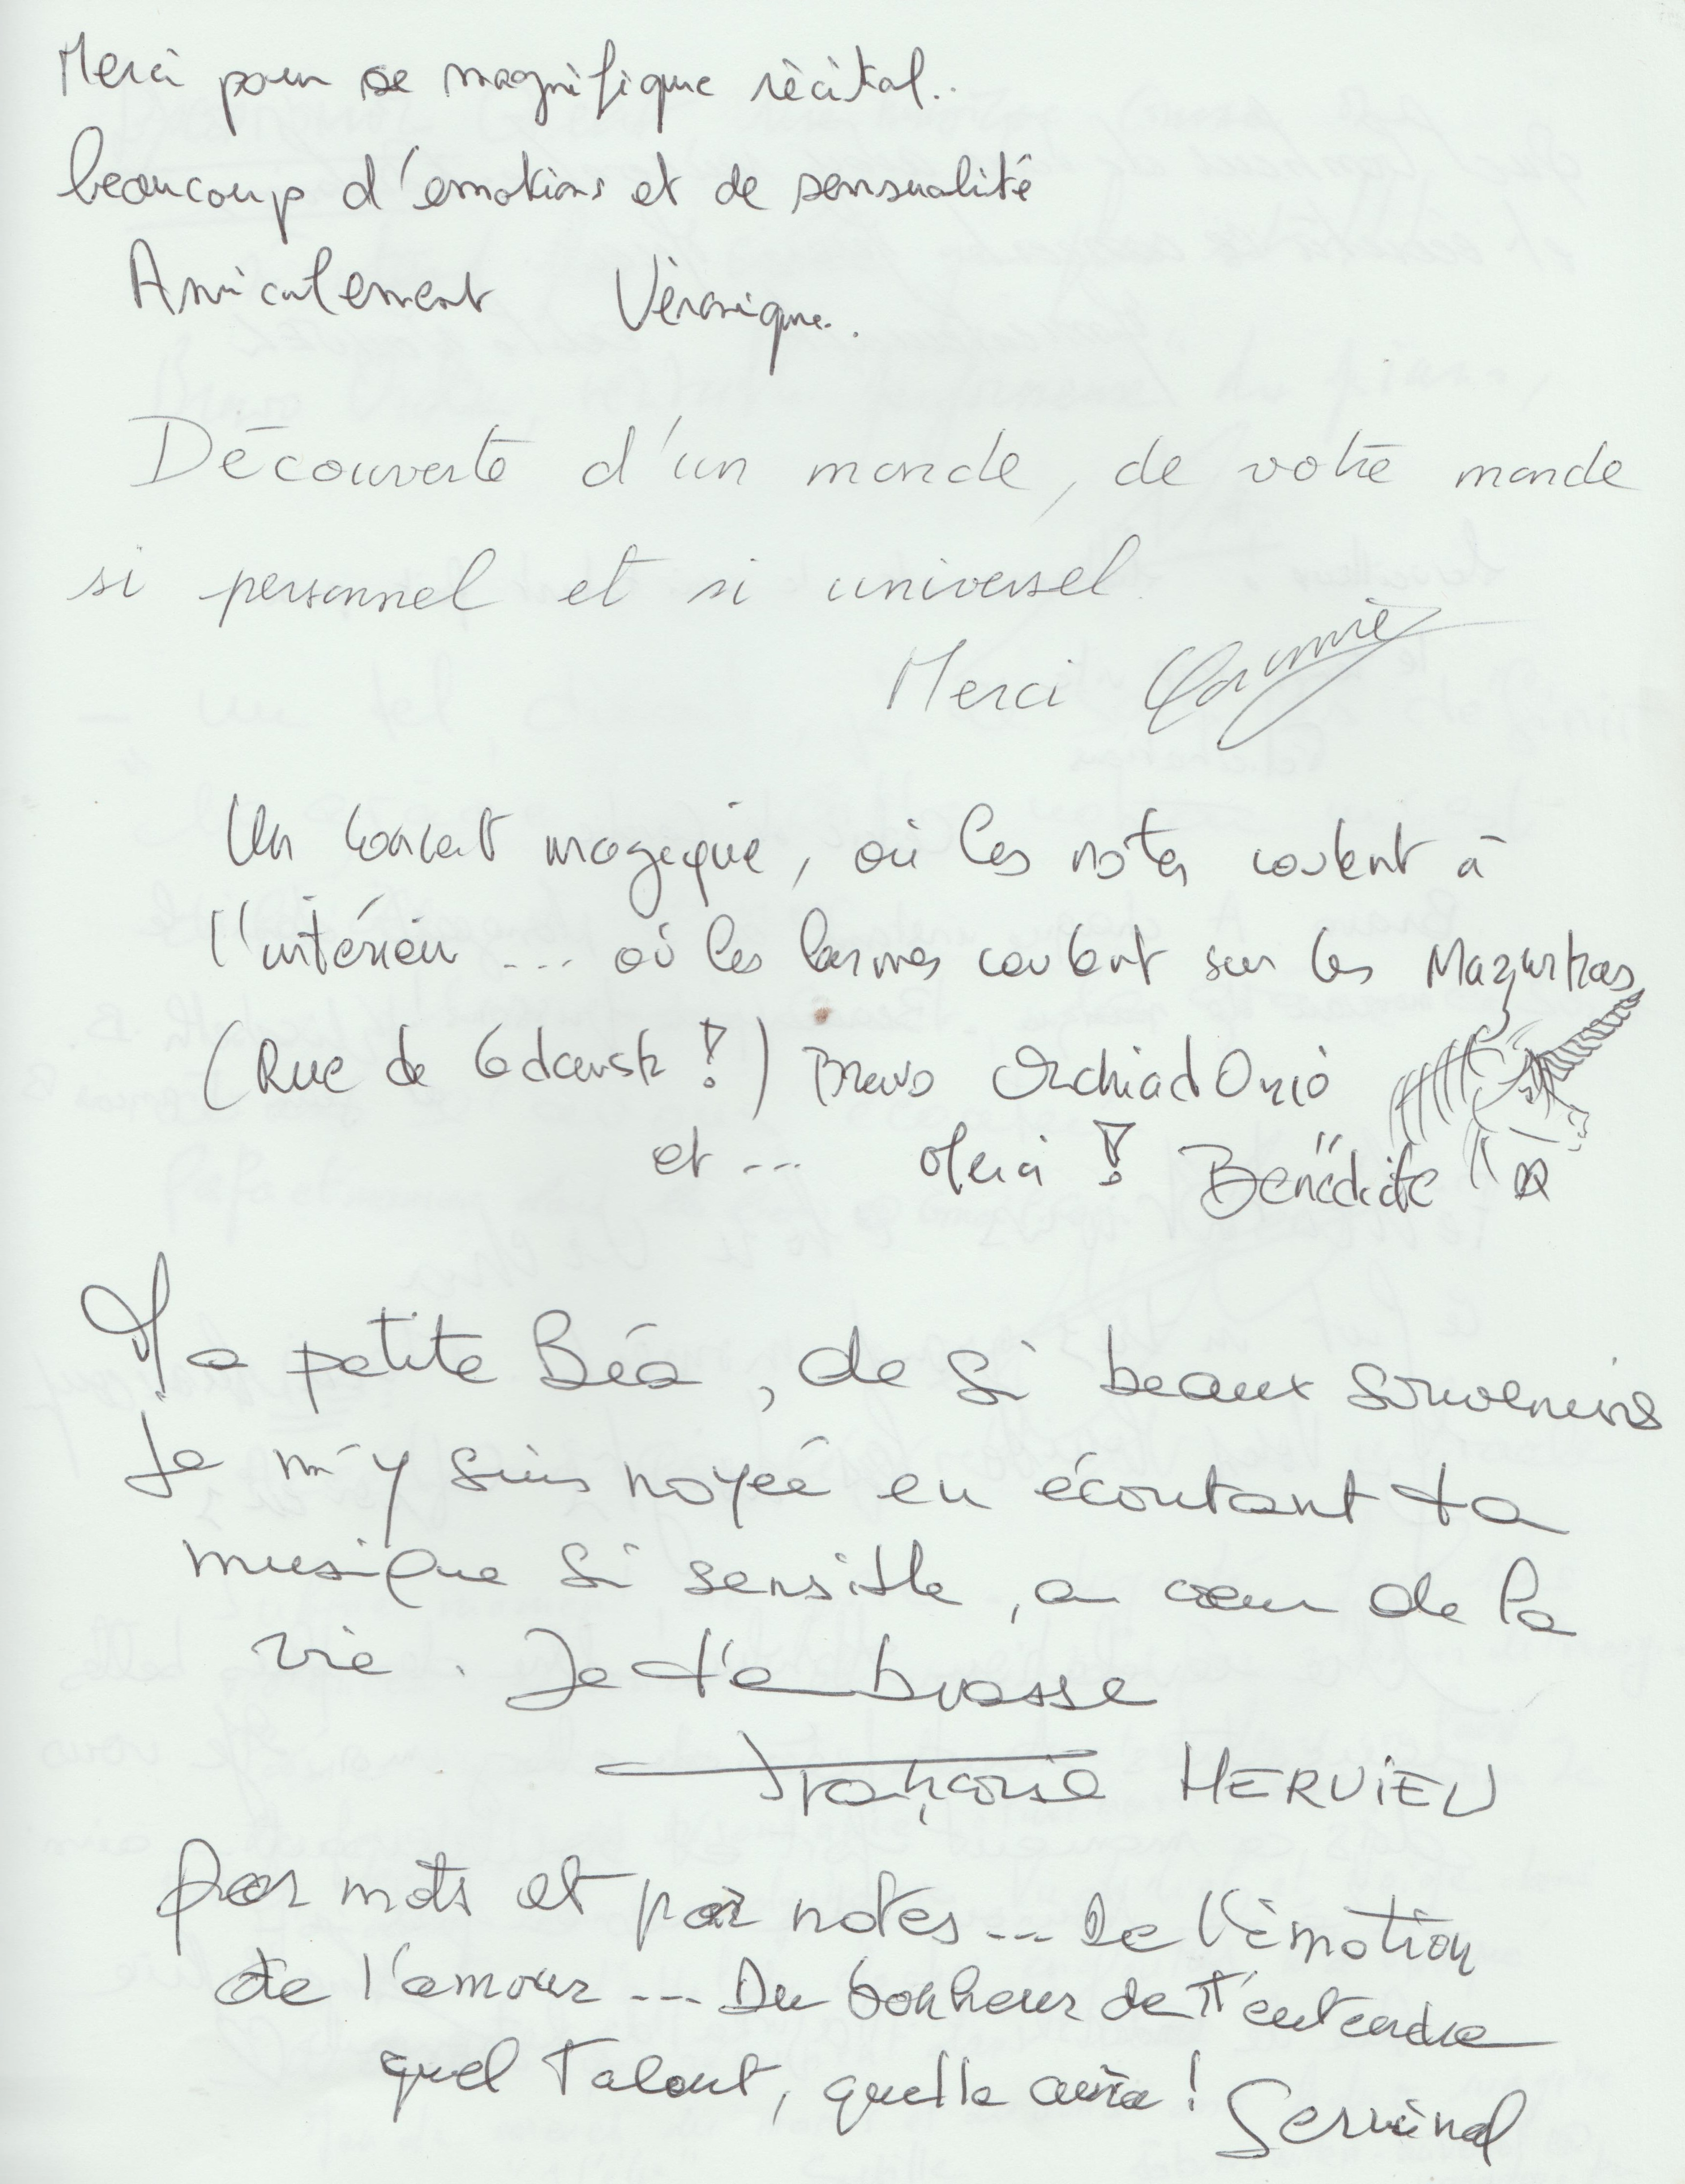 Merci pour se magnifique récital..
beaucoup d'emotions et de sensualité
Amicalement Véronique.
Découverte d'un monde, de votre monde
si personnel et si universel.
Merci
Un concert magique, où les notes coulent à
l'intérieur ... où les larmes coulent sur les Mazurkas
(Rue de Gdansk !) Bravo
et ... Merci ! Bénédicte
Ma petite Béa, de si beaux souvenirs
Je m'y suis noyée en écoutant ta
musique si sensible, au cœur de la
vie. Je t'embrasse
Françoise HERVIEU
par mots et par notes ... De l'émotion
de l'amour ... Du bonheur de t'entendre
quel talent, quelle aura !